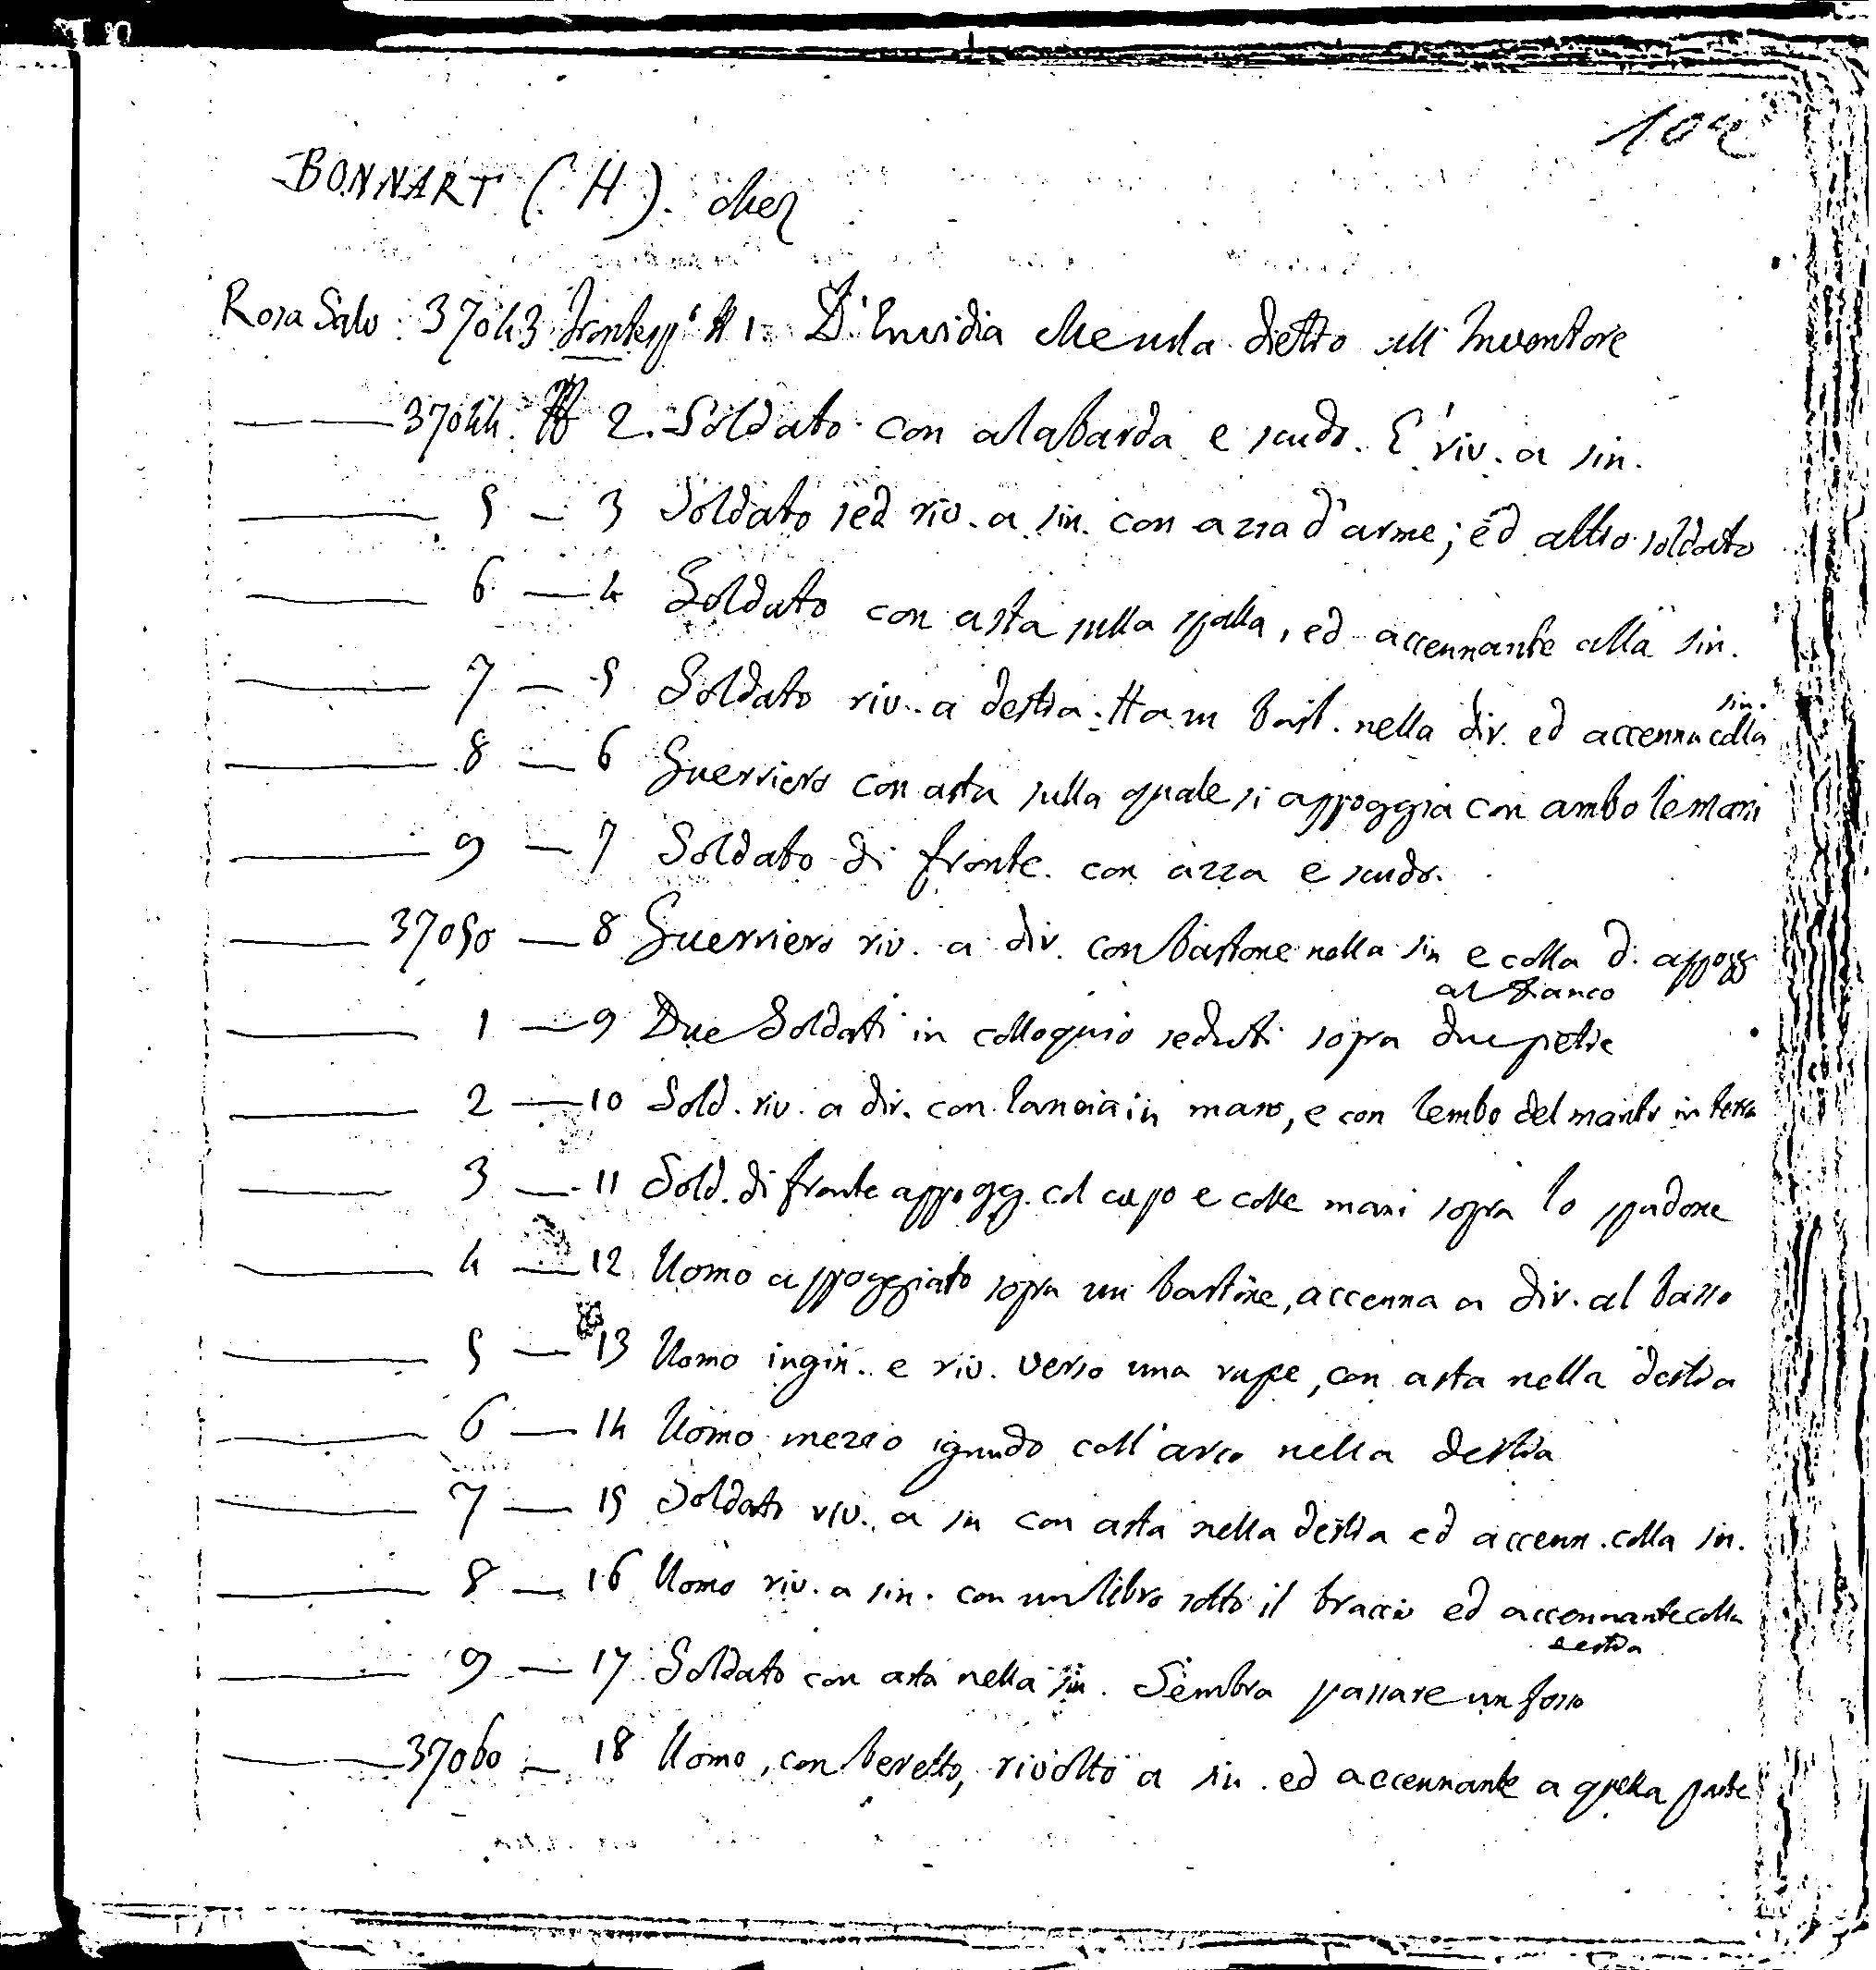 102
BONNART (H). chez
Rosa Salv. 37043 Frontesp° N 1. L'Invidia che urla dietro all'Inventore
37044. N 2. Soldato con alabarda e scudo. E' riv. a sin.
5 — 3 Soldato sed riv. a sin. con azza d'arme; ed altro soldato
6 — 4 Soldato con asta sulla spalla, ed accennante alla sin.
7 — 5 Soldato riv. a destra. Ha un bast. nella dir. ed accenna colla sin.
8 — 6 Guerriero con asta sulla quale si appoggia con ambo le mani
9 — 7 Soldato di fronte con azza e scudo.
37050 — 8 Guerriero riv. a dir. con bastone nella sin e colla d. appogg al fianco
1 — 9 Due Soldati in colloquio seduti sopra due pietre
2 — 10 Sold. riv. a dir. con lancia in mano, e con lembo del manto in terra
3 — 11 Sold. di fronte appogg. col capo e colle mani sopra lo spadone
4 — 12 Uomo appoggiato sopra un bastone, accenna a dir. al basso
5 — 13 Uomo ingin. e riv. verso una rupe, con asta nella destra
6 — 14 Uomo mezzo ignudo coll'arco nella destra
7 — 15 Soldato riv. a sin con asta nella destra ed accenn. colla sin.
8 — 16 Uomo riv. a sin. con un libro sotto il braccio ed accennante colla destra
9 — 17 Soldato con asta nella sin. Sembra passare un fosso
37060 — 18 Uomo, con beretto, rivolto a sin. ed accennante a quella parte